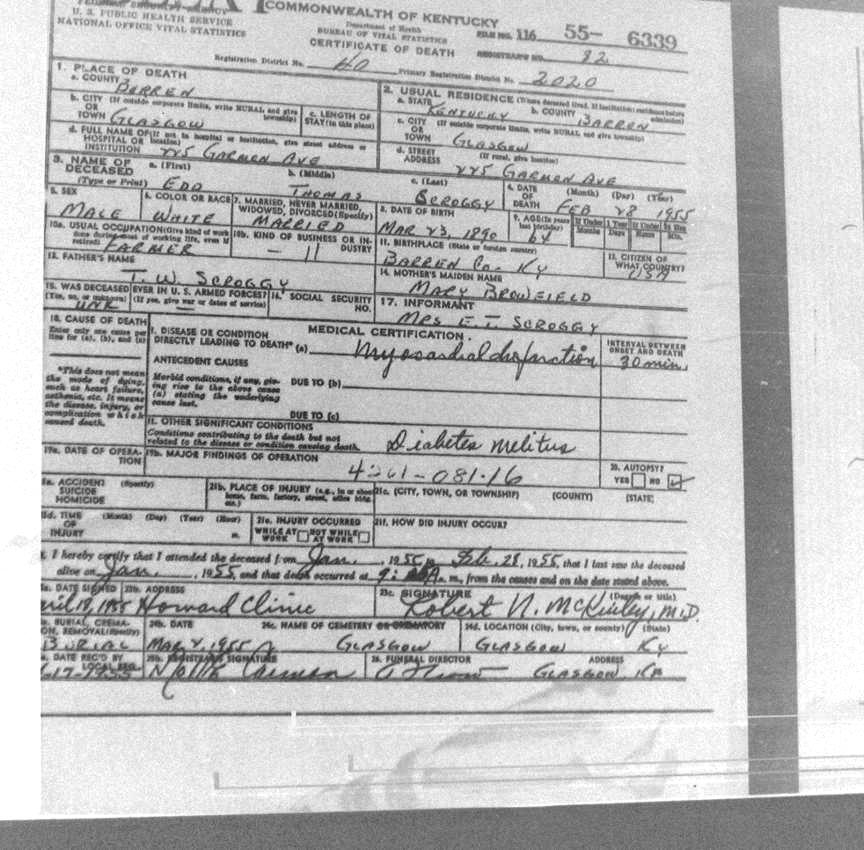 COMMONWEALTH OF KENTUCKY
U. S. PUBLIC HEALTH SERVICE
NATIONAL OFFICE VITAL STATISTICS
Department of Health
BUREAU OF VITAL STATISTICS
CERTIFICATE OF DEATH
FILE NO. 116 55- 6339
REGISTRAR'S NO. 82
Registration District No. 40 Primary Registration District No. 2020
1. PLACE OF DEATH
a. COUNTY BARREN
2. USUAL RESIDENCE (Where deceased lived. If institution: residence before admission)
a. STATE KENTUCKY b. COUNTY BARREN
b. CITY (If outside corporate limits, write RURAL and give township) OR TOWN GLASGOW
c. LENGTH OF STAY (in this place)
c. CITY (If outside corporate limits, write RURAL and give township) OR TOWN GLASGOW
d. FULL NAME OF (If not in hospital or institution, give street address or location) HOSPITAL OR INSTITUTION 225 GARMEN AVE
d. STREET ADDRESS (If rural, give location) 225 GARMEN AVE
3. NAME OF DECEASED (Type or Print)
a. (First) EDD b. (Middle) THOMAS c. (Last) SCROGGY
4. DATE OF DEATH (Month) (Day) (Year) FEB 28 1955
5. SEX MALE
6. COLOR OR RACE WHITE
7. MARRIED, NEVER MARRIED, WIDOWED, DIVORCED (Specify) MARRIED
8. DATE OF BIRTH MAR 23, 1890
9. AGE (In years last birthday) 64 If Under 1 Year Months Days If Under 24 Hrs. Hours Min.
10a. USUAL OCCUPATION (Give kind of work done during most of working life, even if retired) FARMER
10b. KIND OF BUSINESS OR INDUSTRY - 11
11. BIRTHPLACE (State or foreign country) BARREN CO. KY
12. CITIZEN OF WHAT COUNTRY? USA
13. FATHER'S NAME T. W. SCROGGY
14. MOTHER'S MAIDEN NAME MARY BROWFIELD
15. WAS DECEASED EVER IN U. S. ARMED FORCES? (Yes, no, or unknown) (If yes, give war or dates of service) UNK -
16. SOCIAL SECURITY NO.
17. INFORMANT MRS E. T. SCROGGY
18. CAUSE OF DEATH
Enter only one cause per line for (a), (b), and (c)
MEDICAL CERTIFICATION
INTERVAL BETWEEN ONSET AND DEATH
I. DISEASE OR CONDITION DIRECTLY LEADING TO DEATH* (a) Myocardial infarction 30 min.
*This does not mean the mode of dying, such as heart failure, asthenia, etc. It means the disease, injury, or complication which caused death.
ANTECEDENT CAUSES
Morbid conditions, if any, giving rise to the above cause (a) stating the underlying cause last.
DUE TO (b)
DUE TO (c)
II. OTHER SIGNIFICANT CONDITIONS
Conditions contributing to the death but not related to the disease or condition causing death. Diabetes Melitus
19a. DATE OF OPERATION
19b. MAJOR FINDINGS OF OPERATION
081-16
20. AUTOPSY?
YES NO
21a. ACCIDENT SUICIDE HOMICIDE (Specify)
21b. PLACE OF INJURY (e.g., in or about home, farm, factory, street, office bldg., etc.)
21c. (CITY, TOWN, OR TOWNSHIP) (COUNTY) (STATE)
21d. TIME OF INJURY (Month) (Day) (Year) (Hour) m.
21e. INJURY OCCURRED WHILE AT WORK NOT WHILE AT WORK
21f. HOW DID INJURY OCCUR?
I hereby certify that I attended the deceased from Jan., 1955, to Feb. 28, 1955, that I last saw the deceased
alive on Jan., 1955, and that death occurred at 9: A. m., from the causes and on the date stated above.
DATE SIGNED April 18, 1955
23b. ADDRESS Howard Clinic
23c. SIGNATURE (Degree or title) Robert N. McKinley, M.D.
BURIAL, CREMATION, REMOVAL (Specify) BURIAL
24b. DATE MAR 2, 1955
24c. NAME OF CEMETERY OR CREMATORY GLASGOW
24d. LOCATION (City, town, or county) (State) GLASGOW KY
DATE REC'D BY LOCAL REG. -17-1955
25b. REGISTRAR'S SIGNATURE
26. FUNERAL DIRECTOR ADDRESS GLASGOW, KY